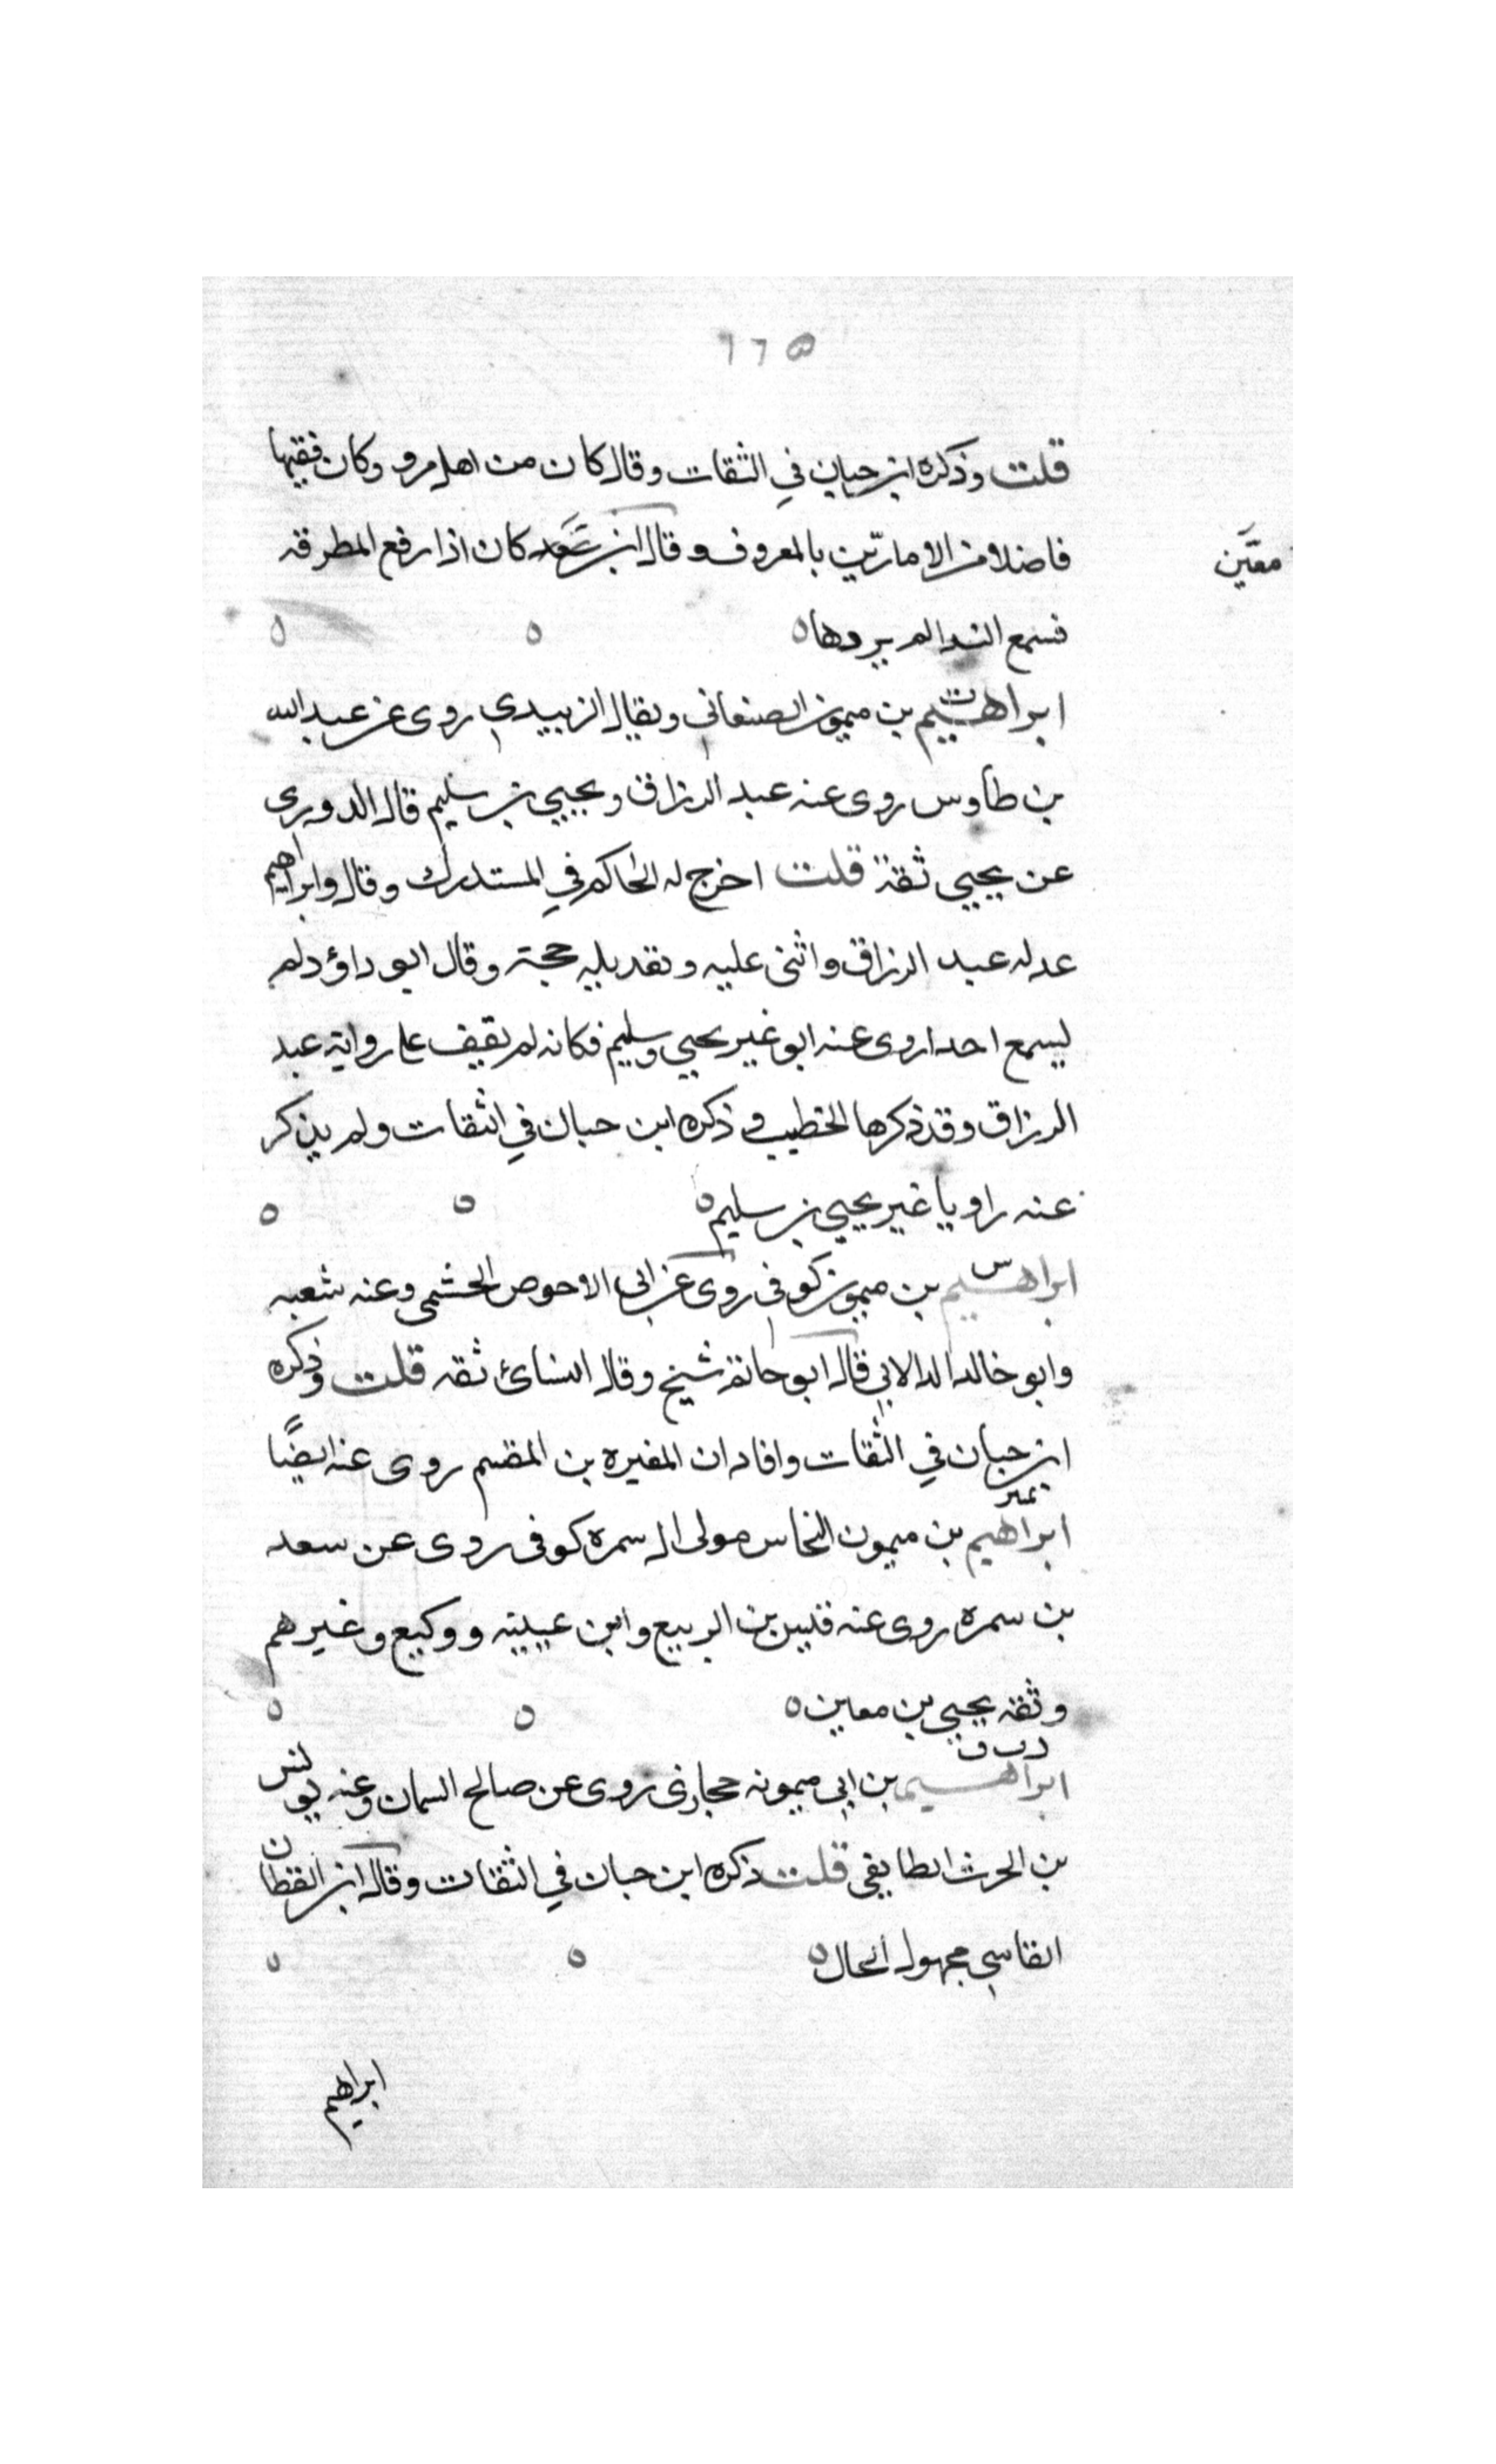 ١٦٥
قلت وذكره ابن حبان في الثقات وقال كان من اهل مرو وكان فقيها
فاضلا من الامارّين بالمعروف وقال ابن كان اذا رفع المطرقه
معين
فسمع الندا لم يردها
ابراهيم بن ميمون الصنعاني ويقال الزبيدي روى عن عبد الله
بن طاوس روى عنه عبد الرزاق ويحيى بن سليم قال الدوري
عن يحيى ثقة قلت اخرج له الحاكم في المستدرك وقال وابراهيم
عدله عبد الرزاق واثنى عليه وتعديله حجة وقال ابو داؤد لم
ليسمع احدا روى عنه ابو غير يحيى وسليم فكانه لم يقيف على رواية عبد
الرزاق وقد ذكرها الخطيب و ذكره ابن حبان في الثقات ولم يذكر
عنه راويا غير يحيى بن سليم
س
ابراهيم بن ميمون كوفي روى عن ابي الاحوص الجشمي وعنه شعبه
وابو خالد الدالابي قال ابو حاتم شيخ وقال النسائ ثقه قلت وذكره
ابن حبان في الثقات وافاد ان المغيره بن المقسم روى عنه ايضًا
تمييز
ابراهيم بن ميمون النحاس مولى ال سمره كوفي روى عن سعد
بن سمره روى عنه قيس بن الربيع وابن عيينه ووكيع وغيرهم
وثقه يحيى بن معاين
د ت ق
ابراهيم بن ابي ميمونه حجازى روى عن صالح السمان وعنه يونس
بن الحرث الطايفي قلت ذكره ابن حبان في الثقات وقال ابن القطان
الفاسي مجهول الحال
ابراهيم